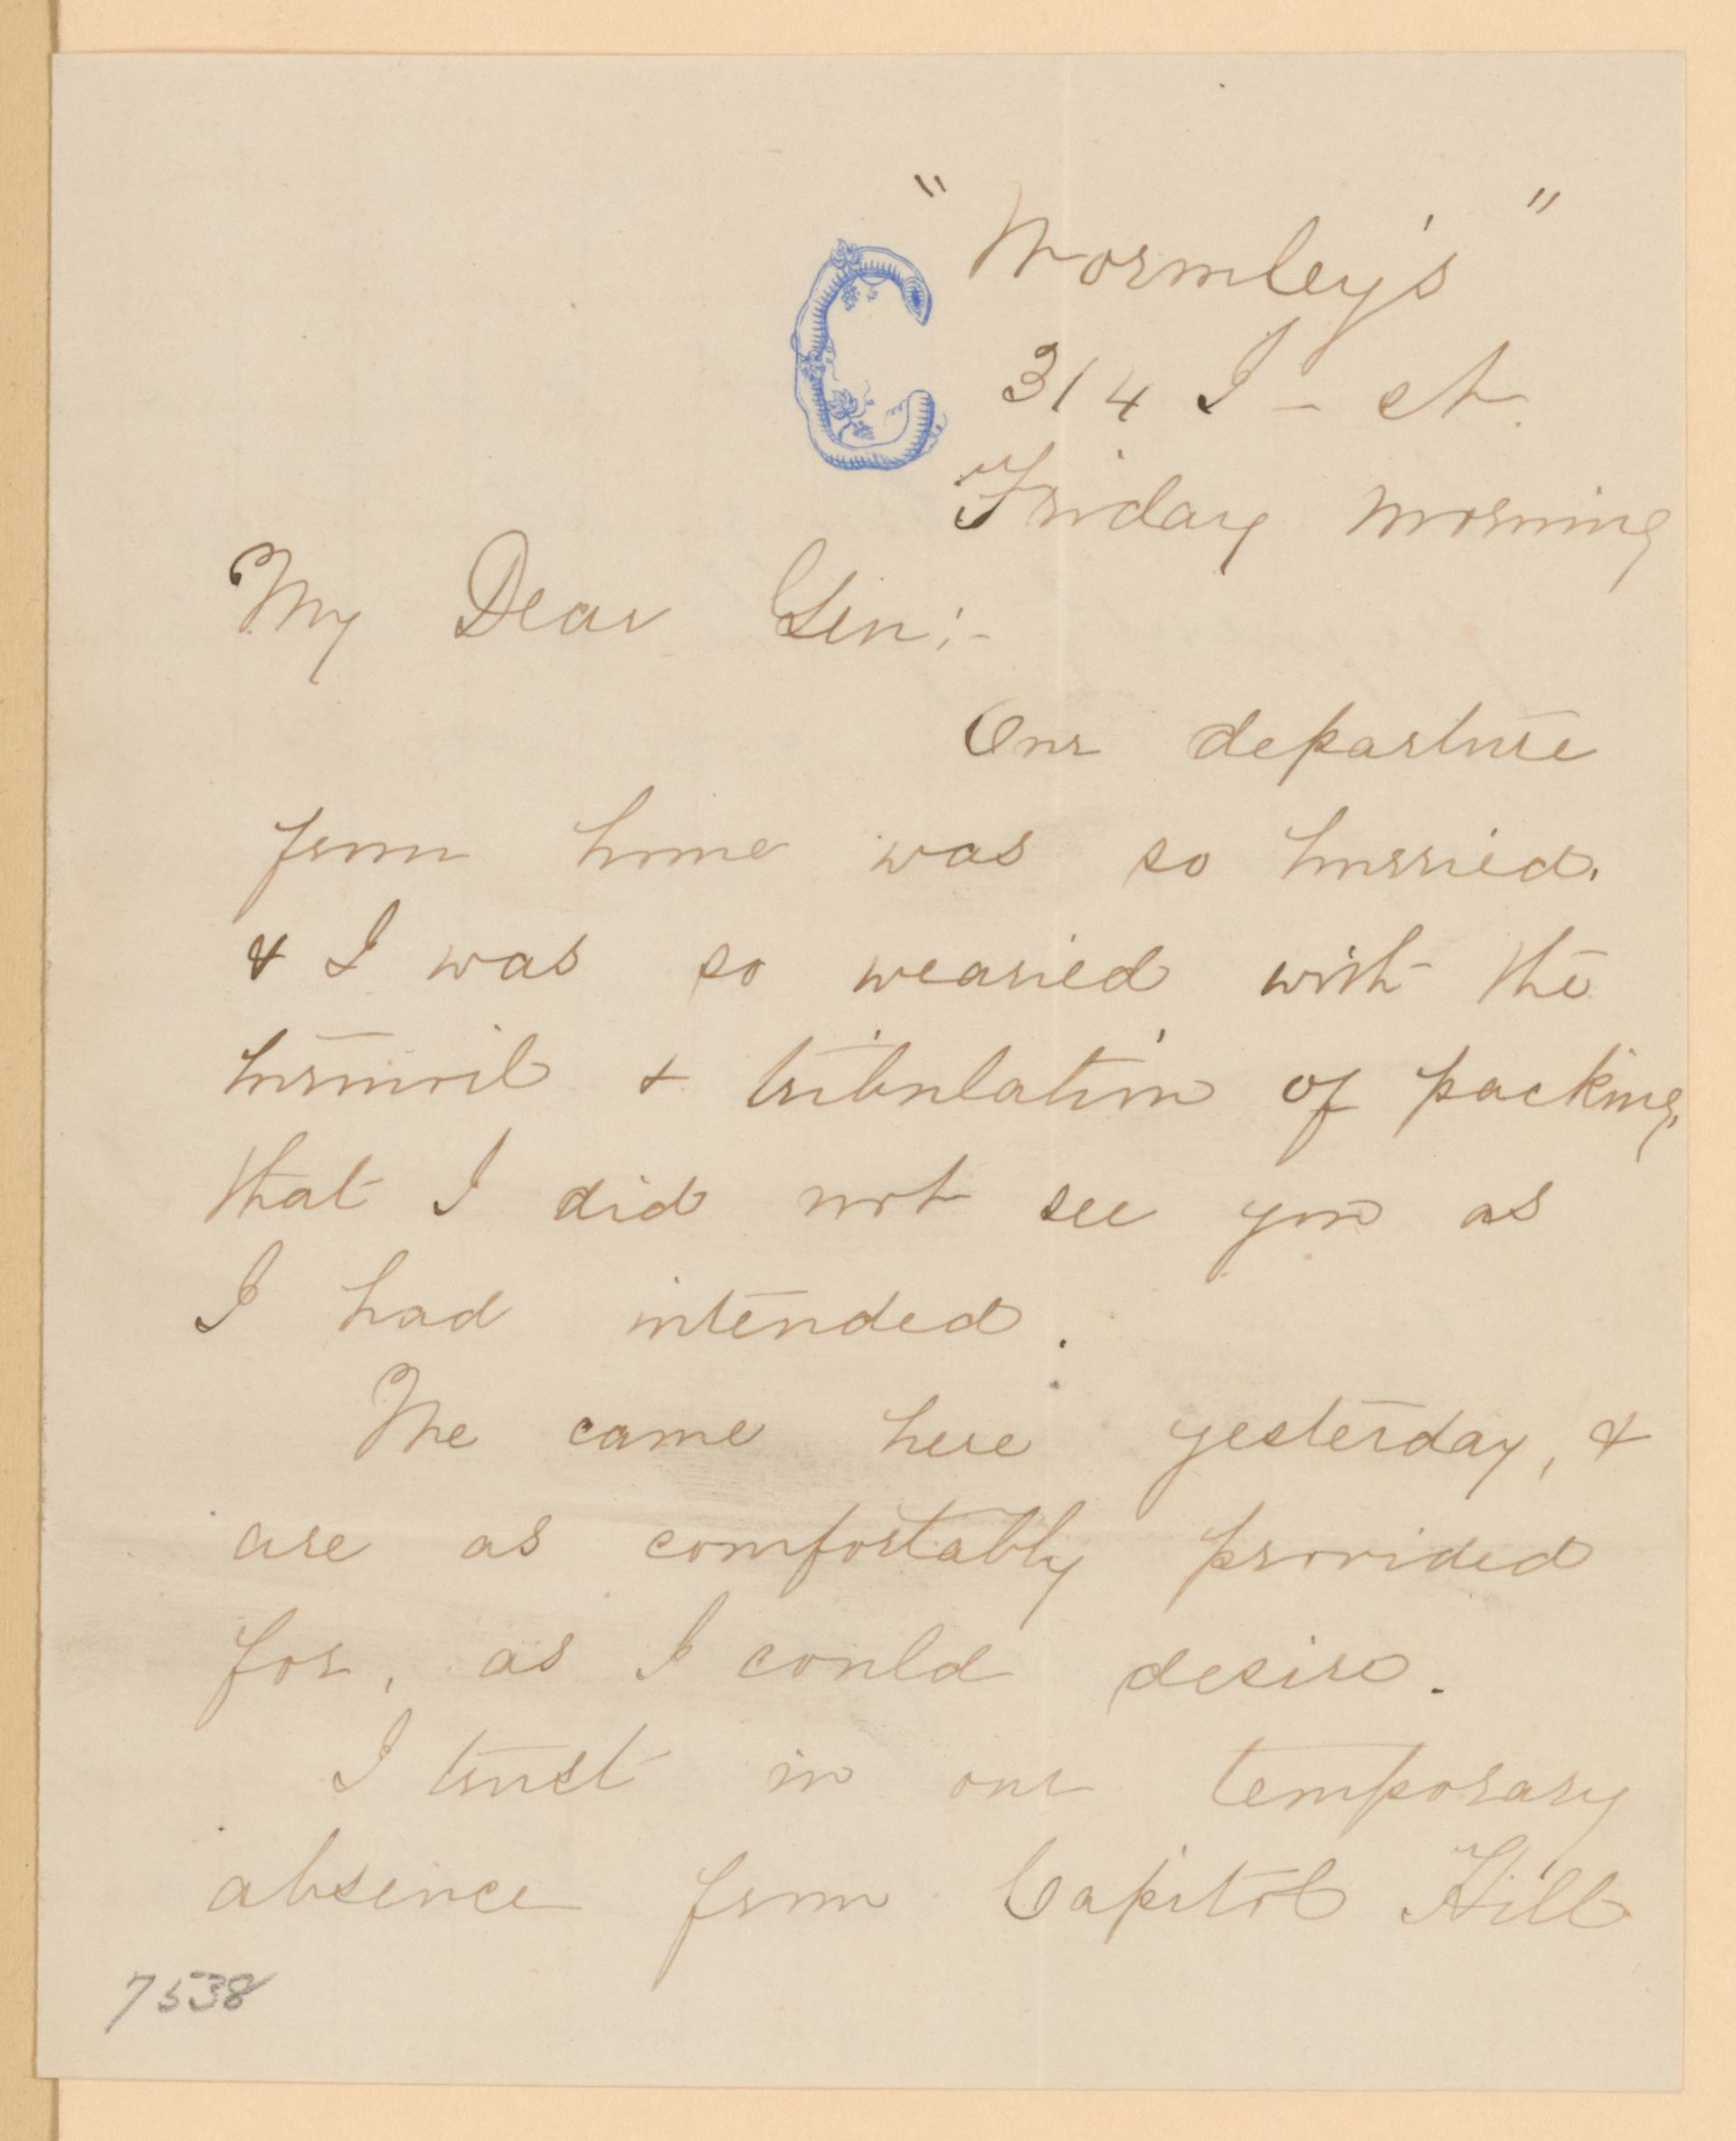 "Wormley's"
C
314 I - st.
Friday morning
My Dear Gen:-
Our departure
from home was so hurried.
& I was so wearied with the
turmoil & tribulation of packing,
that I did not see you as
I had intended.
We came here yesterday, &
are as comfortably provided
for, as I could desire.
I trust in our temporary
absence from Capitol Hill
7538